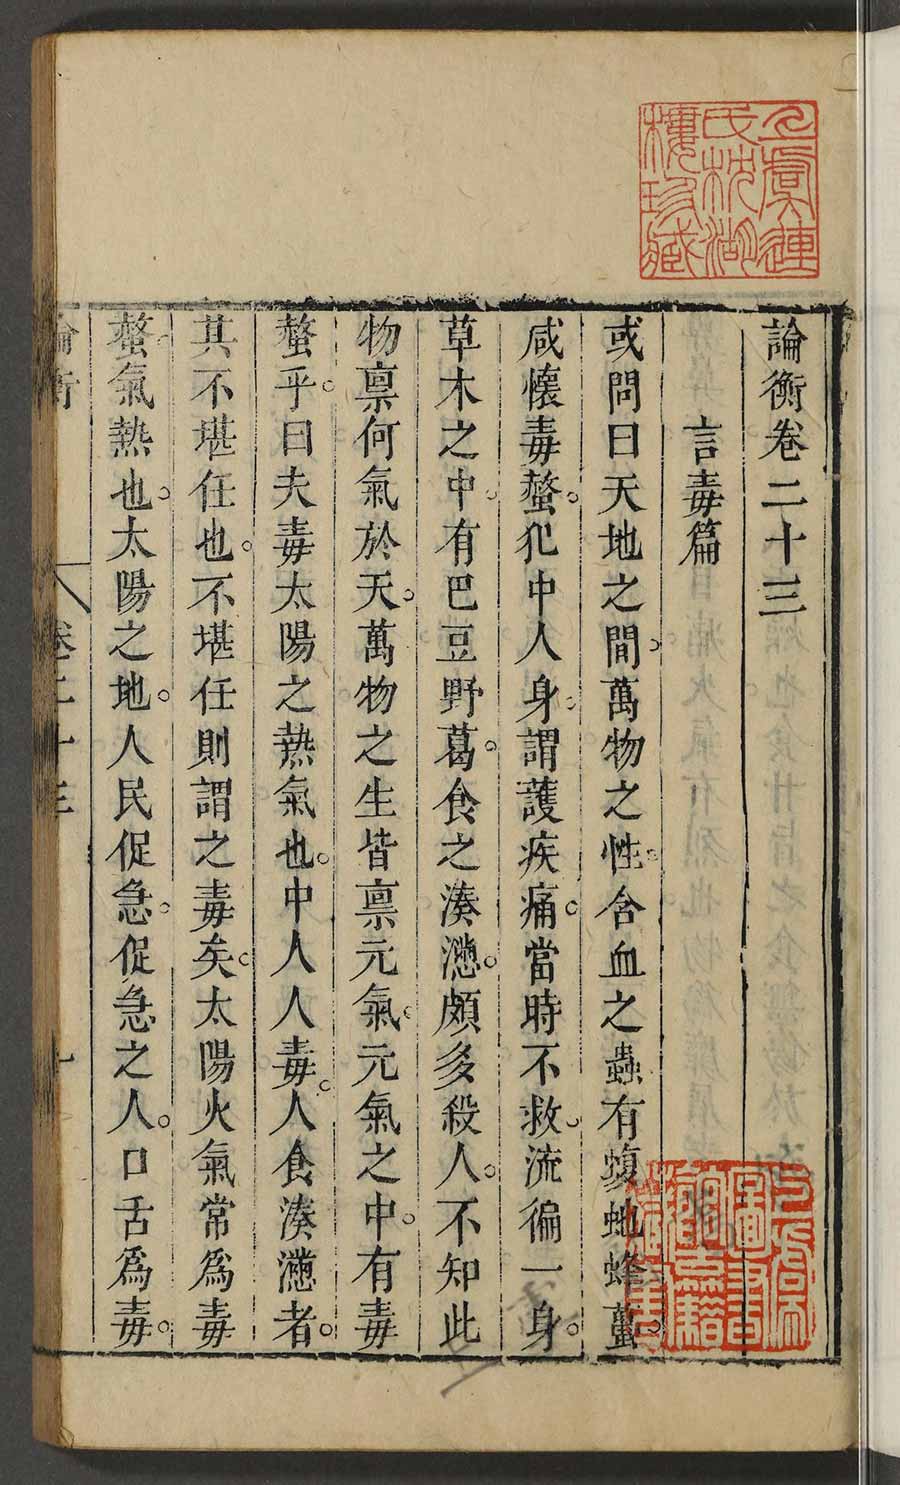 論衡卷二十三
言毒篇
或問曰天地之間。萬物之性。含血之蟲有蝮虵蜂蠆。
咸懷毒螫。犯中人身。謂護疾痛。當時不救。流徧一身。
草木之中。有巴豆野葛。食之湊懣。頗多殺人。不知此
物禀何氣於天。萬物之生皆禀元氣。元氣之中。有毒
螫乎。曰夫毒太陽之熱氣也。中人人毒。人食湊懣者。
其不堪任也。不堪任則謂之毒矣。太陽火氣常爲毒
螫。氣熱也。太陽之地。人民促急。促急之人。口舌爲毒。
論衡 卷二十三 一
上虞連
氏枕湖
樓珍藏